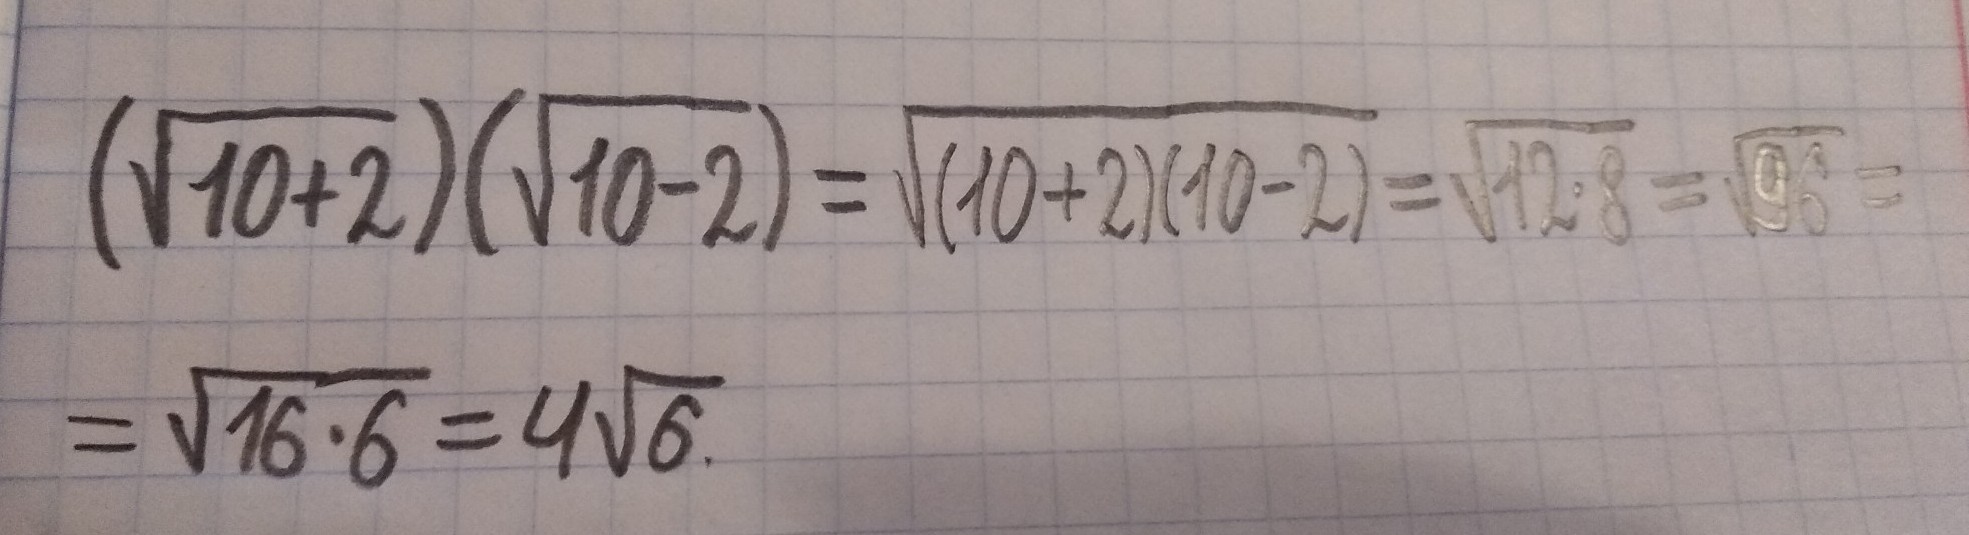 (√10+2)(√10-2) = √(10+2)(10-2) = √12·8 = √96 =
= √16·6 = 4√6.